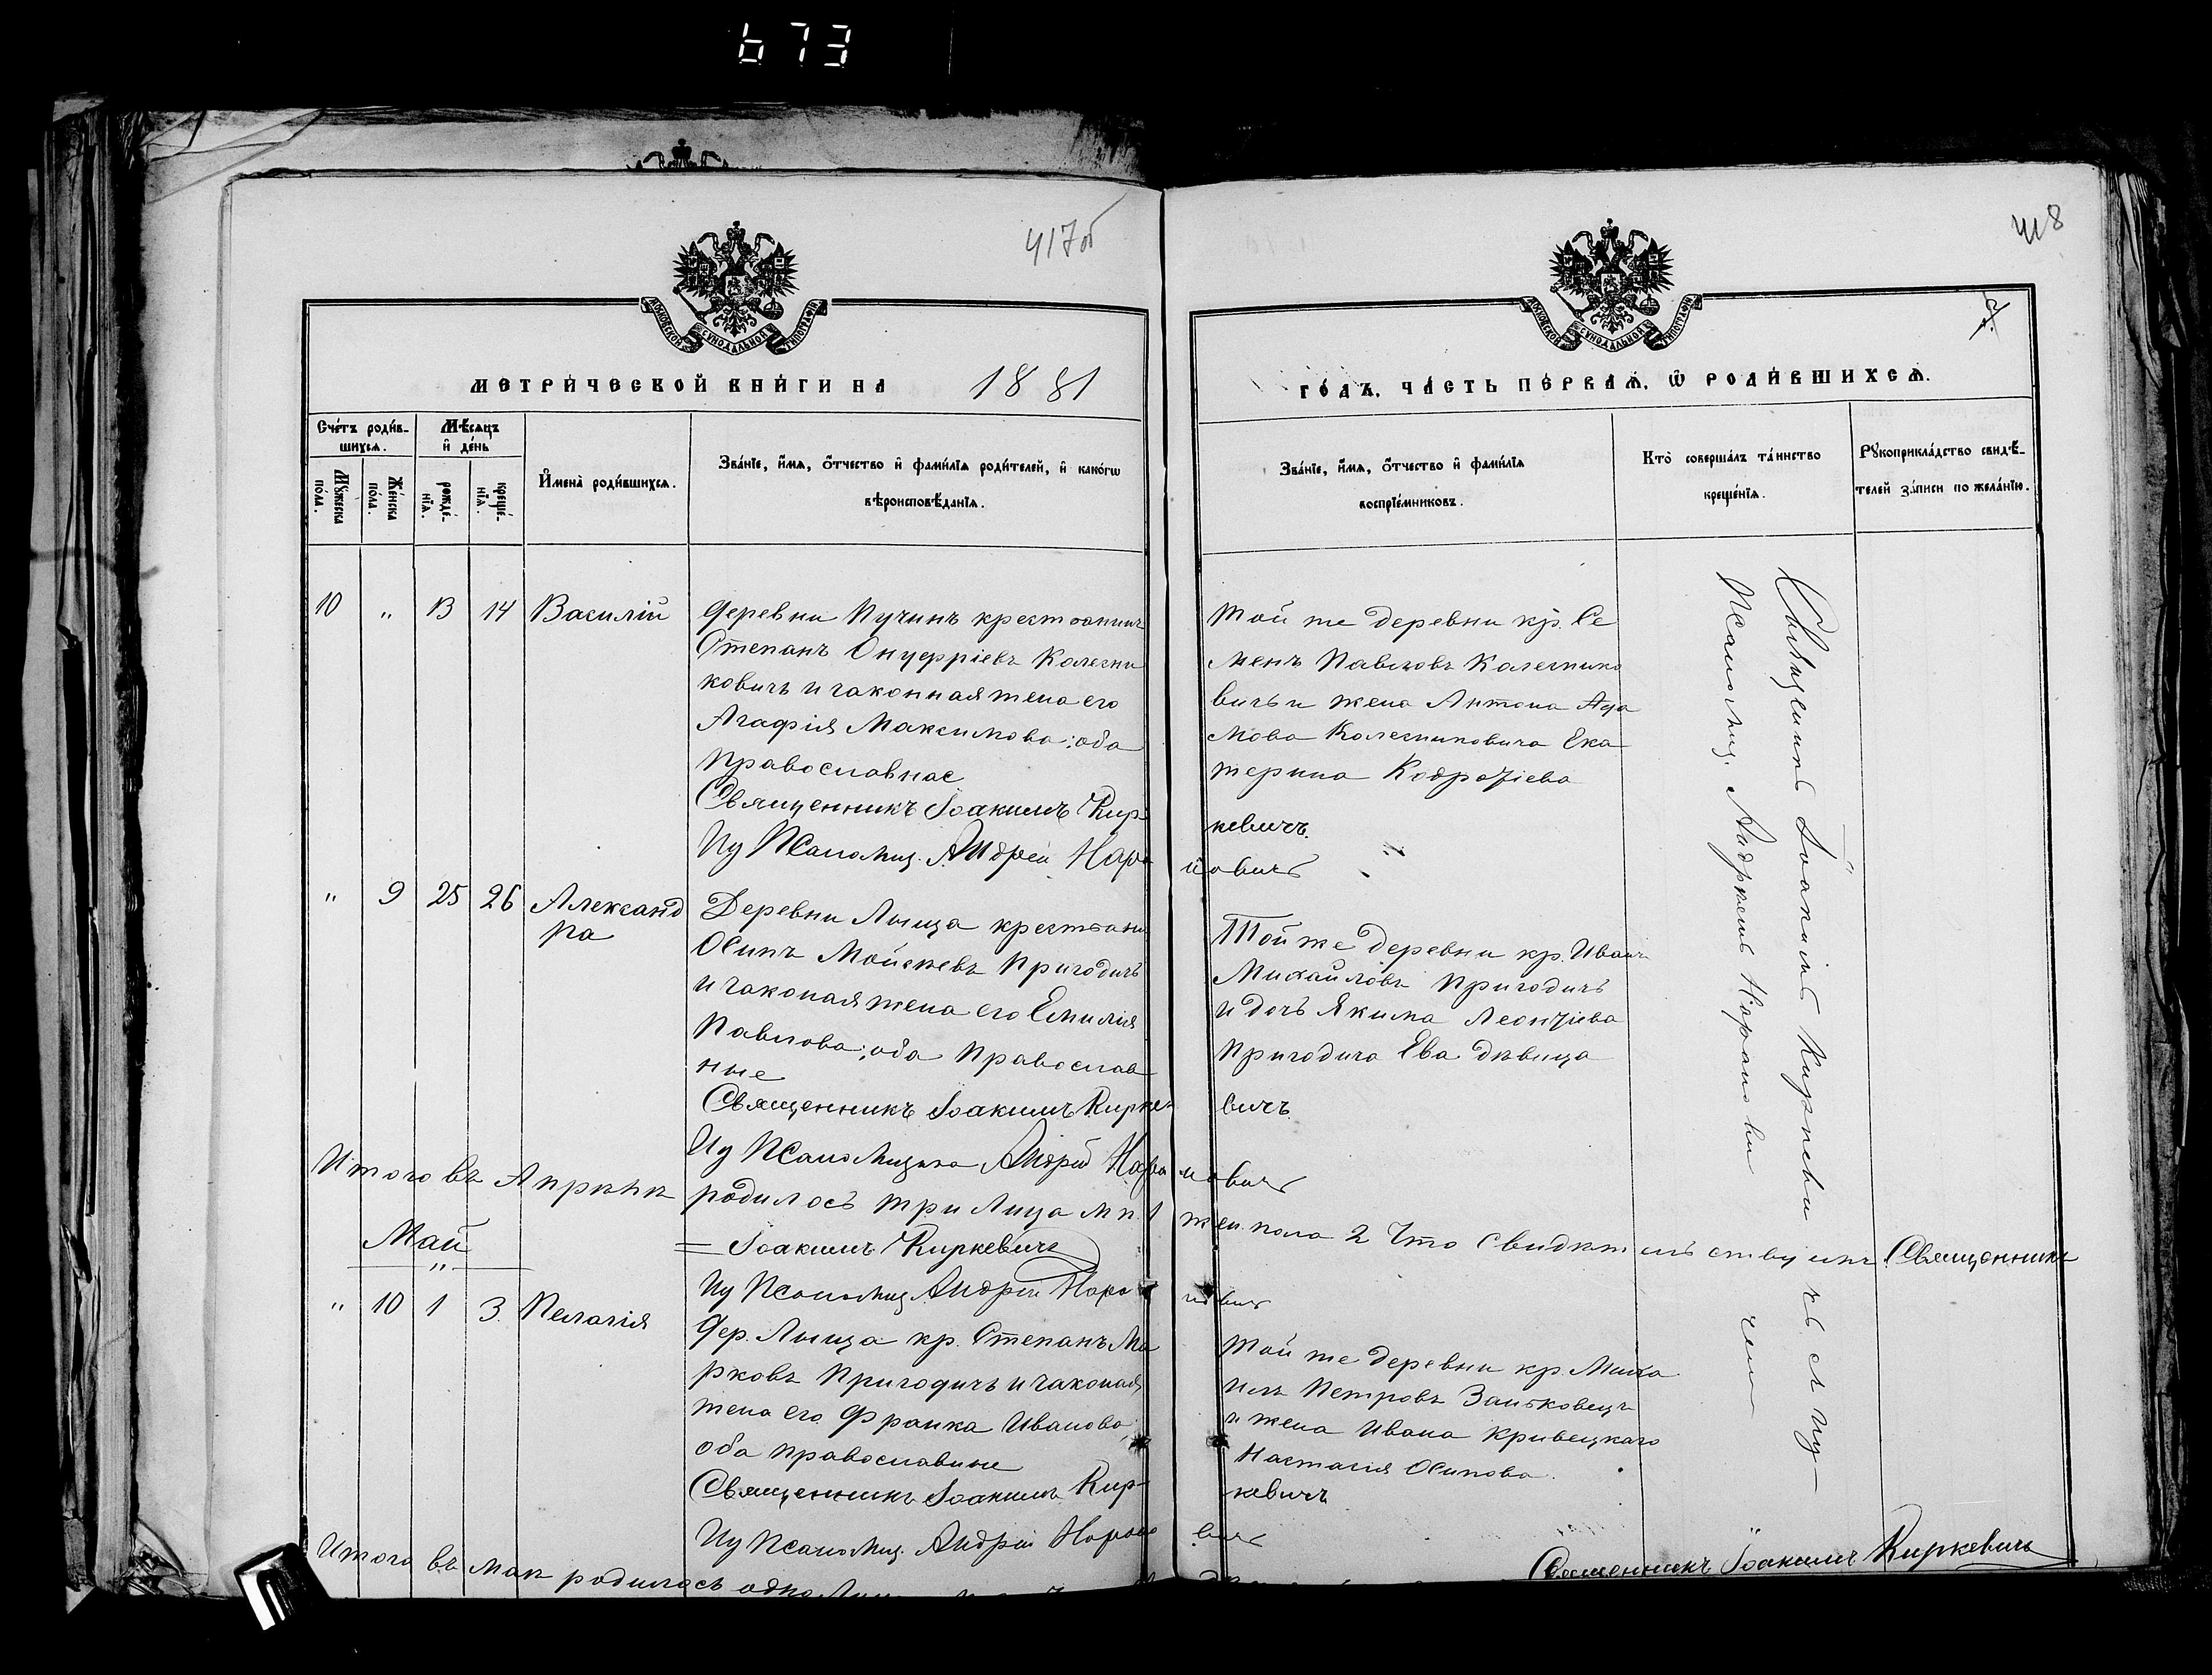 673
417об
418
МОСКОВСКОЙ СѴНОДАЛЬНОЙ ТИПОГРАФІИ
МОСКОВСКОЙ СѴНОДАЛЬНОЙ ТИПОГРАФІИ
МЕТРИ́ЧЕСКОЙ КНИ́ГИ НА 1881
ГО́ДЪ, ЧА́СТЬ ПЕ́РВАѦ, Ѿ РОДИ́ВШИХСѦ.
Сче́тъ роди́в-
шихсѧ.
Мꙋ́жеска по́ла.
Же́нска по́ла.
Мѣ́сѧцъ
и҆ де́нь
рожде́-
нїѧ.
креще́-
нїѧ.
И҆мена̀ роди́вшихсѧ.
Зва́нїе, и҆́мѧ, ѻ҆́тчество и҆ фами́лїѧ роди́телей, и҆ како́гѡ
вѣроисповѣ́данїѧ.
Зва́нїе, и҆́мѧ, ѻ҆́тчество и҆ фами́лїѧ
воспрїе́мниковъ.
Кто̀ соверша́лъ та́инство
креще́нїѧ.
Рꙋкоприкла́дство свидѣ́-
телей за́писи по жела́нїю.
10 „ 13 14 Василій
деревни Пучинъ крестьянинъ
Степанъ Онуфріевъ Колесни
ковичъ и законная жена его
Агафія Максимова; оба
православнае
Священникъ Іоакимъ Кир-
кевичъ.
Ну Псаломщ. Андрей Наро
новичъ
Той же деревни кр. Се
менъ Павловъ Колеснико
вичъ и жена Антона Ада
мова Колесниковича Ека
терина Кодратіева
„ 9 25 26 Александ
ра
Деревни Лыща крестьяни
Осипъ Мойсеевъ Пригодичъ
и законая жена его Емилія
Павлова; оба Православ
ные
Священникъ Іоакимъ Кирке-
вичъ.
Ну Псаломщика Андрей Наро
новичъ
Той же деревни кр. Иванъ
Михайловъ Пригодичъ
и дочь Якима Леонтіева
Пригодича Ева дѣвица
Итого въ Апрѣлѣ родилось три лица м п. 1 жен. пола 2 Что свидѣтельствуемъ: Священникъ
Іоакимъ Киркевичъ
Ну Псаломщ Андрей Наро
новичъ
Май
„ 10 1 3. Пелагія
Дер. Лыща кр. Степанъ Ма
рковъ Пригодичъ и законая
жена его Франка Иванова
оба православные
Священникъ Іоакимъ Кир-
кевичъ
Ну Псаломщ. Андрей Нароно
вичъ
Той же деревни кр. Миха
илъ Петровъ Заньковецъ
и жена Ивана Кривецкаго
Настасія Осипова.
Священникъ Іоакимъ Киркевичъ съ
Псаломщ. Андреемъ Нароновичемъ
Итого въ маѣ родилось одно Лице
Священникъ Іоакимъ Киркевичъ